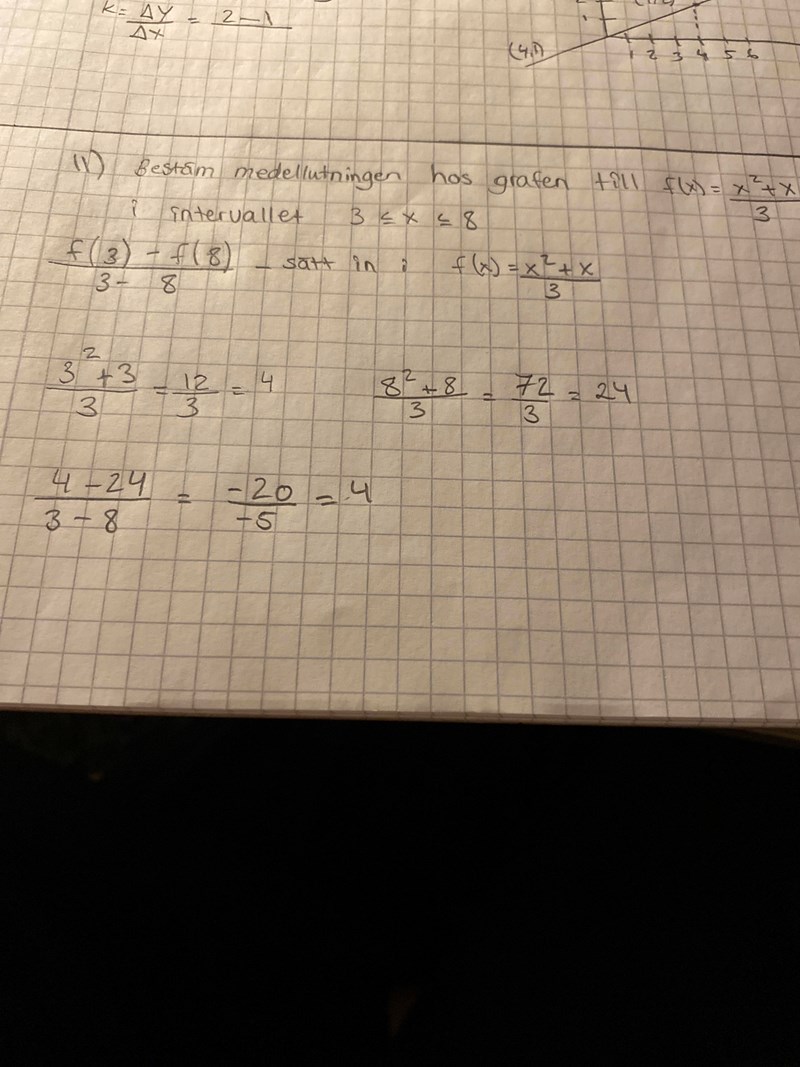 K = ΔY/ΔX = 2-1
(4,1)
1 2 3 4 5 6
11) Bestäm medellutningen hos grafen till f(x) = (x²+x)/3
i intervallet 3 ≤ x ≤ 8
(f(3) - f(8))/(3 - 8) - sätt in i f(x) = (x²+x)/3
(3²+3)/3 = 12/3 = 4 (8²+8)/3 = 72/3 = 24
(4-24)/(3-8) = -20/-5 = 4